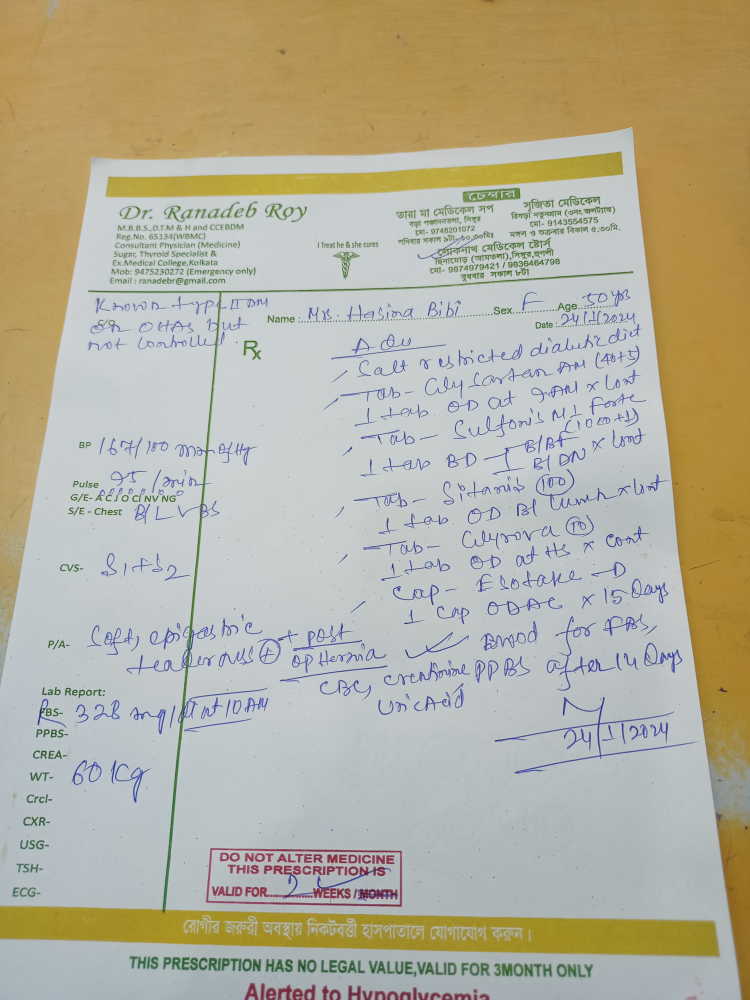 Dr. Ranadeb Roy
M.B.B.S.,D.T.M & H and CCEBDM
Reg.No. 65134(WBMC)
Consultant Physician (Medicine)
Sugar, Thyroid Specialist &
Ex.Medical College,Kolkata
Mob: 9475230272 (Emergency only)
Email : ranadebr@gmail.com
I Treat he & she cures
চেম্বার
তারা মা মেডিকেল সপ
সিঙ্গুর
মো- 9748201072
শনিবার সকাল
লোকনাথ মেডিকেল ষ্টোর্স
(আমতলা),সিঙ্গুর,হুগলী
মো- 9874979421 / 9836464798
বুধবার সকাল ৮টা
সুজিতা মেডিকেল
মো- 9143554575
মঙ্গল ও শুক্রবার বিকাল ৫.৩০মি.
Known type II DM
on OHAs but
not controlled
Name : Mrs. Hasina Bibi Sex F Age 50 yrs
Date : 24/1/2024
Rx
Adv
Salt restricted diabetic diet
Tab- Glysartan AM (40+5)
1 tab OD at 9AM x cont
Tab- Sulfonis M1 Forte
(1000+1)
1 tab BD - 1 B/BF
1 B/DN x cont
Tab- Sitanib (100)
1 tab OD B/ lunch x cont
Tab- Glyrova (10)
1 tab OD at HS x cont
Cap- Esotake-D
1 cap OD AC x 15 Days
Blood for FBS,
CBC, creatinine PPBS after 14 Days
Uric Acid
24/1/2024
BP 167/100 mm of Hg
Pulse 95 /min
G/E- A C J O Cl NV NG
S/E - Chest B/L VBS
CVS- S1+S2
P/A- Soft, epigastric
tenderness + + post
op Hernia
Lab Report:
FBS- R 328 mg/dl at 10AM
PPBS-
CREA-
WT- 60 Kg
Crcl-
CXR-
USG-
TSH-
ECG-
DO NOT ALTER MEDICINE
THIS PRESCRIPTION IS
VALID FOR 2 WEEKS / MONTH
রোগীর জরুরী অবস্থায় নিকটবর্ত্তী হাসপাতালে যোগাযোগ করুন।
THIS PRESCRIPTION HAS NO LEGAL VALUE,VALID FOR 3MONTH ONLY
Alerted to Hypoglycemia